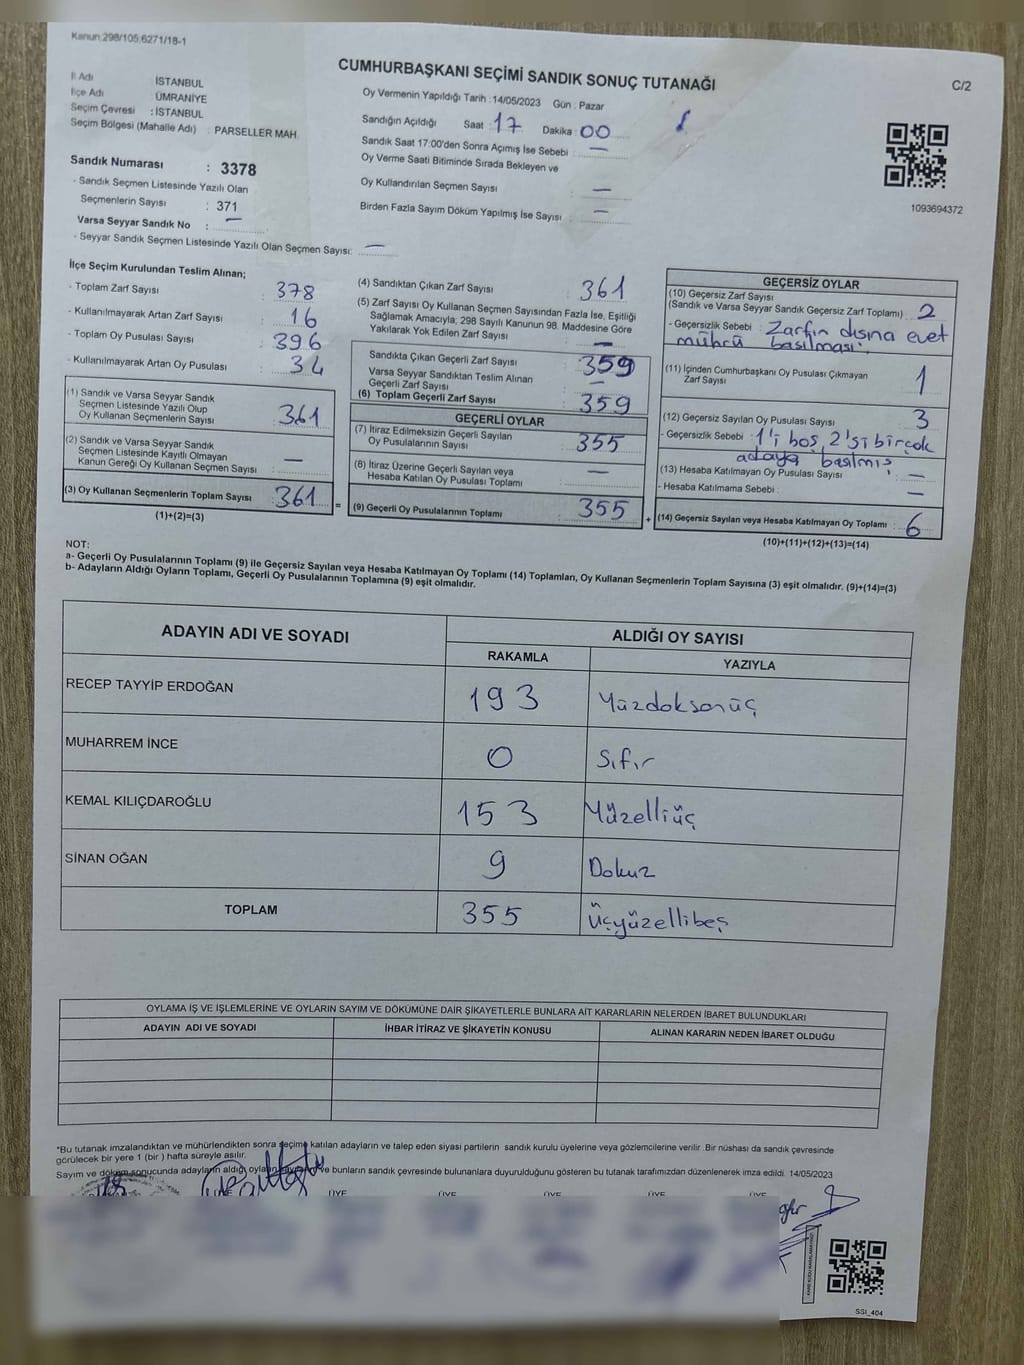 Kanun:298/105;6271/18-1
CUMHURBAŞKANI SEÇİMİ SANDIK SONUÇ TUTANAĞI
C/2
İl Adı : İSTANBUL
İlçe Adı : ÜMRANİYE
Seçim Çevresi : İSTANBUL
Seçim Bölgesi (Mahalle Adı) : PARSELLER MAH.
Sandık Numarası : 3378
- Sandık Seçmen Listesinde Yazılı Olan
Seçmenlerin Sayısı : 371
Varsa Seyyar Sandık No : —
- Seyyar Sandık Seçmen Listesinde Yazılı Olan Seçmen Sayısı: —
Oy Vermenin Yapıldığı Tarih :14/05/2023 Gün : Pazar
Sandığın Açıldığı Saat :17 Dakika :00
Sandık Saat 17:00'den Sonra Açımış İse Sebebi : —
Oy Verme Saati Bitiminde Sırada Bekleyen ve
Oy Kullandırılan Seçmen Sayısı : —
Birden Fazla Sayım Döküm Yapılmış İse Sayısı : —
1093694372
İlçe Seçim Kurulundan Teslim Alınan;
- Toplam Zarf Sayısı : 378
- Kullanılmayarak Artan Zarf Sayısı : 16
- Toplam Oy Pusulası Sayısı : 396
- Kullanılmayarak Artan Oy Pusulası : 34
(1) Sandık ve Varsa Seyyar Sandık
Seçmen Listesinde Yazılı Olup
Oy Kullanan Seçmenlerin Sayısı : 361
(2) Sandık ve Varsa Seyyar Sandık
Seçmen Listesinde Kayıtlı Olmayan
Kanun Gereği Oy Kullanan Seçmen Sayısı : —
(3) Oy Kullanan Seçmenlerin Toplam Sayısı : 361 =
(1)+(2)=(3)
(4) Sandıktan Çıkan Zarf Sayısı : 361
(5) Zarf Sayısı Oy Kullanan Seçmen Sayısından Fazla İse, Eşitliği
Sağlamak Amacıyla; 298 Sayılı Kanunun 98. Maddesine Göre
Yakılarak Yok Edilen Zarf Sayısı : —
Sandıkta Çıkan Geçerli Zarf Sayısı : 359
Varsa Seyyar Sandıktan Teslim Alınan
Geçerli Zarf Sayısı : —
(6) Toplam Geçerli Zarf Sayısı : 359
GEÇERLİ OYLAR
(7) İtiraz Edilmeksizin Geçerli Sayılan
Oy Pusulalarının Sayısı : 355
(8) İtiraz Üzerine Geçerli Sayılan veya
Hesaba Katılan Oy Pusulası Toplamı : —
(9) Geçerli Oy Pusulalarının Toplamı : 355 +
GEÇERSİZ OYLAR
(10) Geçersiz Zarf Sayısı
(Sandık ve Varsa Seyyar Sandık Geçersiz Zarf Toplamı) : 2
- Geçersizlik Sebebi : Zarfın dışına evet
mührü basılması.
(11) İçinden Cumhurbaşkanı Oy Pusulası Çıkmayan
Zarf Sayısı : 1
(12) Geçersiz Sayılan Oy Pusulası Sayısı : 3
- Geçersizlik Sebebi : 1'i boş, 2'si birçok
adaya basılmış
(13) Hesaba Katılmayan Oy Pusulası Sayısı : —
- Hesaba Katılmama Sebebi : —
(14) Geçersiz Sayılan veya Hesaba Katılmayan Oy Toplamı : 6
(10)+(11)+(12)+(13)=(14)
NOT:
a- Geçerli Oy Pusulalarının Toplamı (9) ile Geçersiz Sayılan veya Hesaba Katılmayan Oy Toplamı (14) Toplamları, Oy Kullanan Seçmenlerin Toplam Sayısına (3) eşit olmalıdır. (9)+(14)=(3)
b- Adayların Aldığı Oyların Toplamı, Geçerli Oy Pusulalarının Toplamına (9) eşit olmalıdır.
ADAYIN ADI VE SOYADI ALDIĞI OY SAYISI
RAKAMLA YAZIYLA
RECEP TAYYİP ERDOĞAN 193 Yüzdoksanüç
MUHARREM İNCE 0 Sıfır
KEMAL KILIÇDAROĞLU 153 Yüzelliüç
SİNAN OĞAN 9 Dokuz
TOPLAM 355 Üçyüzellibeş
OYLAMA İŞ VE İŞLEMLERİNE VE OYLARIN SAYIM VE DÖKÜMÜNE DAİR ŞİKAYETLERLE BUNLARA AİT KARARLARIN NELERDEN İBARET BULUNDUKLARI
ADAYIN ADI VE SOYADI İHBAR İTİRAZ VE ŞİKAYETİN KONUSU ALINAN KARARIN NEDEN İBARET OLDUĞU
*Bu tutanak imzalandıktan ve mühürlendikten sonra seçime katılan adayların ve talep eden siyasi partilerin sandık kurulu üyelerine veya gözlemcilerine verilir. Bir nüshası da sandık çevresinde
görülecek bir yere 1 (bir ) hafta süreyle asılır.
Sayım ve döküm sonucunda adayların aldığı oyların ve bunların sandık çevresinde bulunanlara duyurulduğunu gösteren bu tutanak tarafımızdan düzenlenerek imza edildi. 14/05/2023
ÜYE ÜYE ÜYE ÜYE ÜYE ÜYE
SSI_404